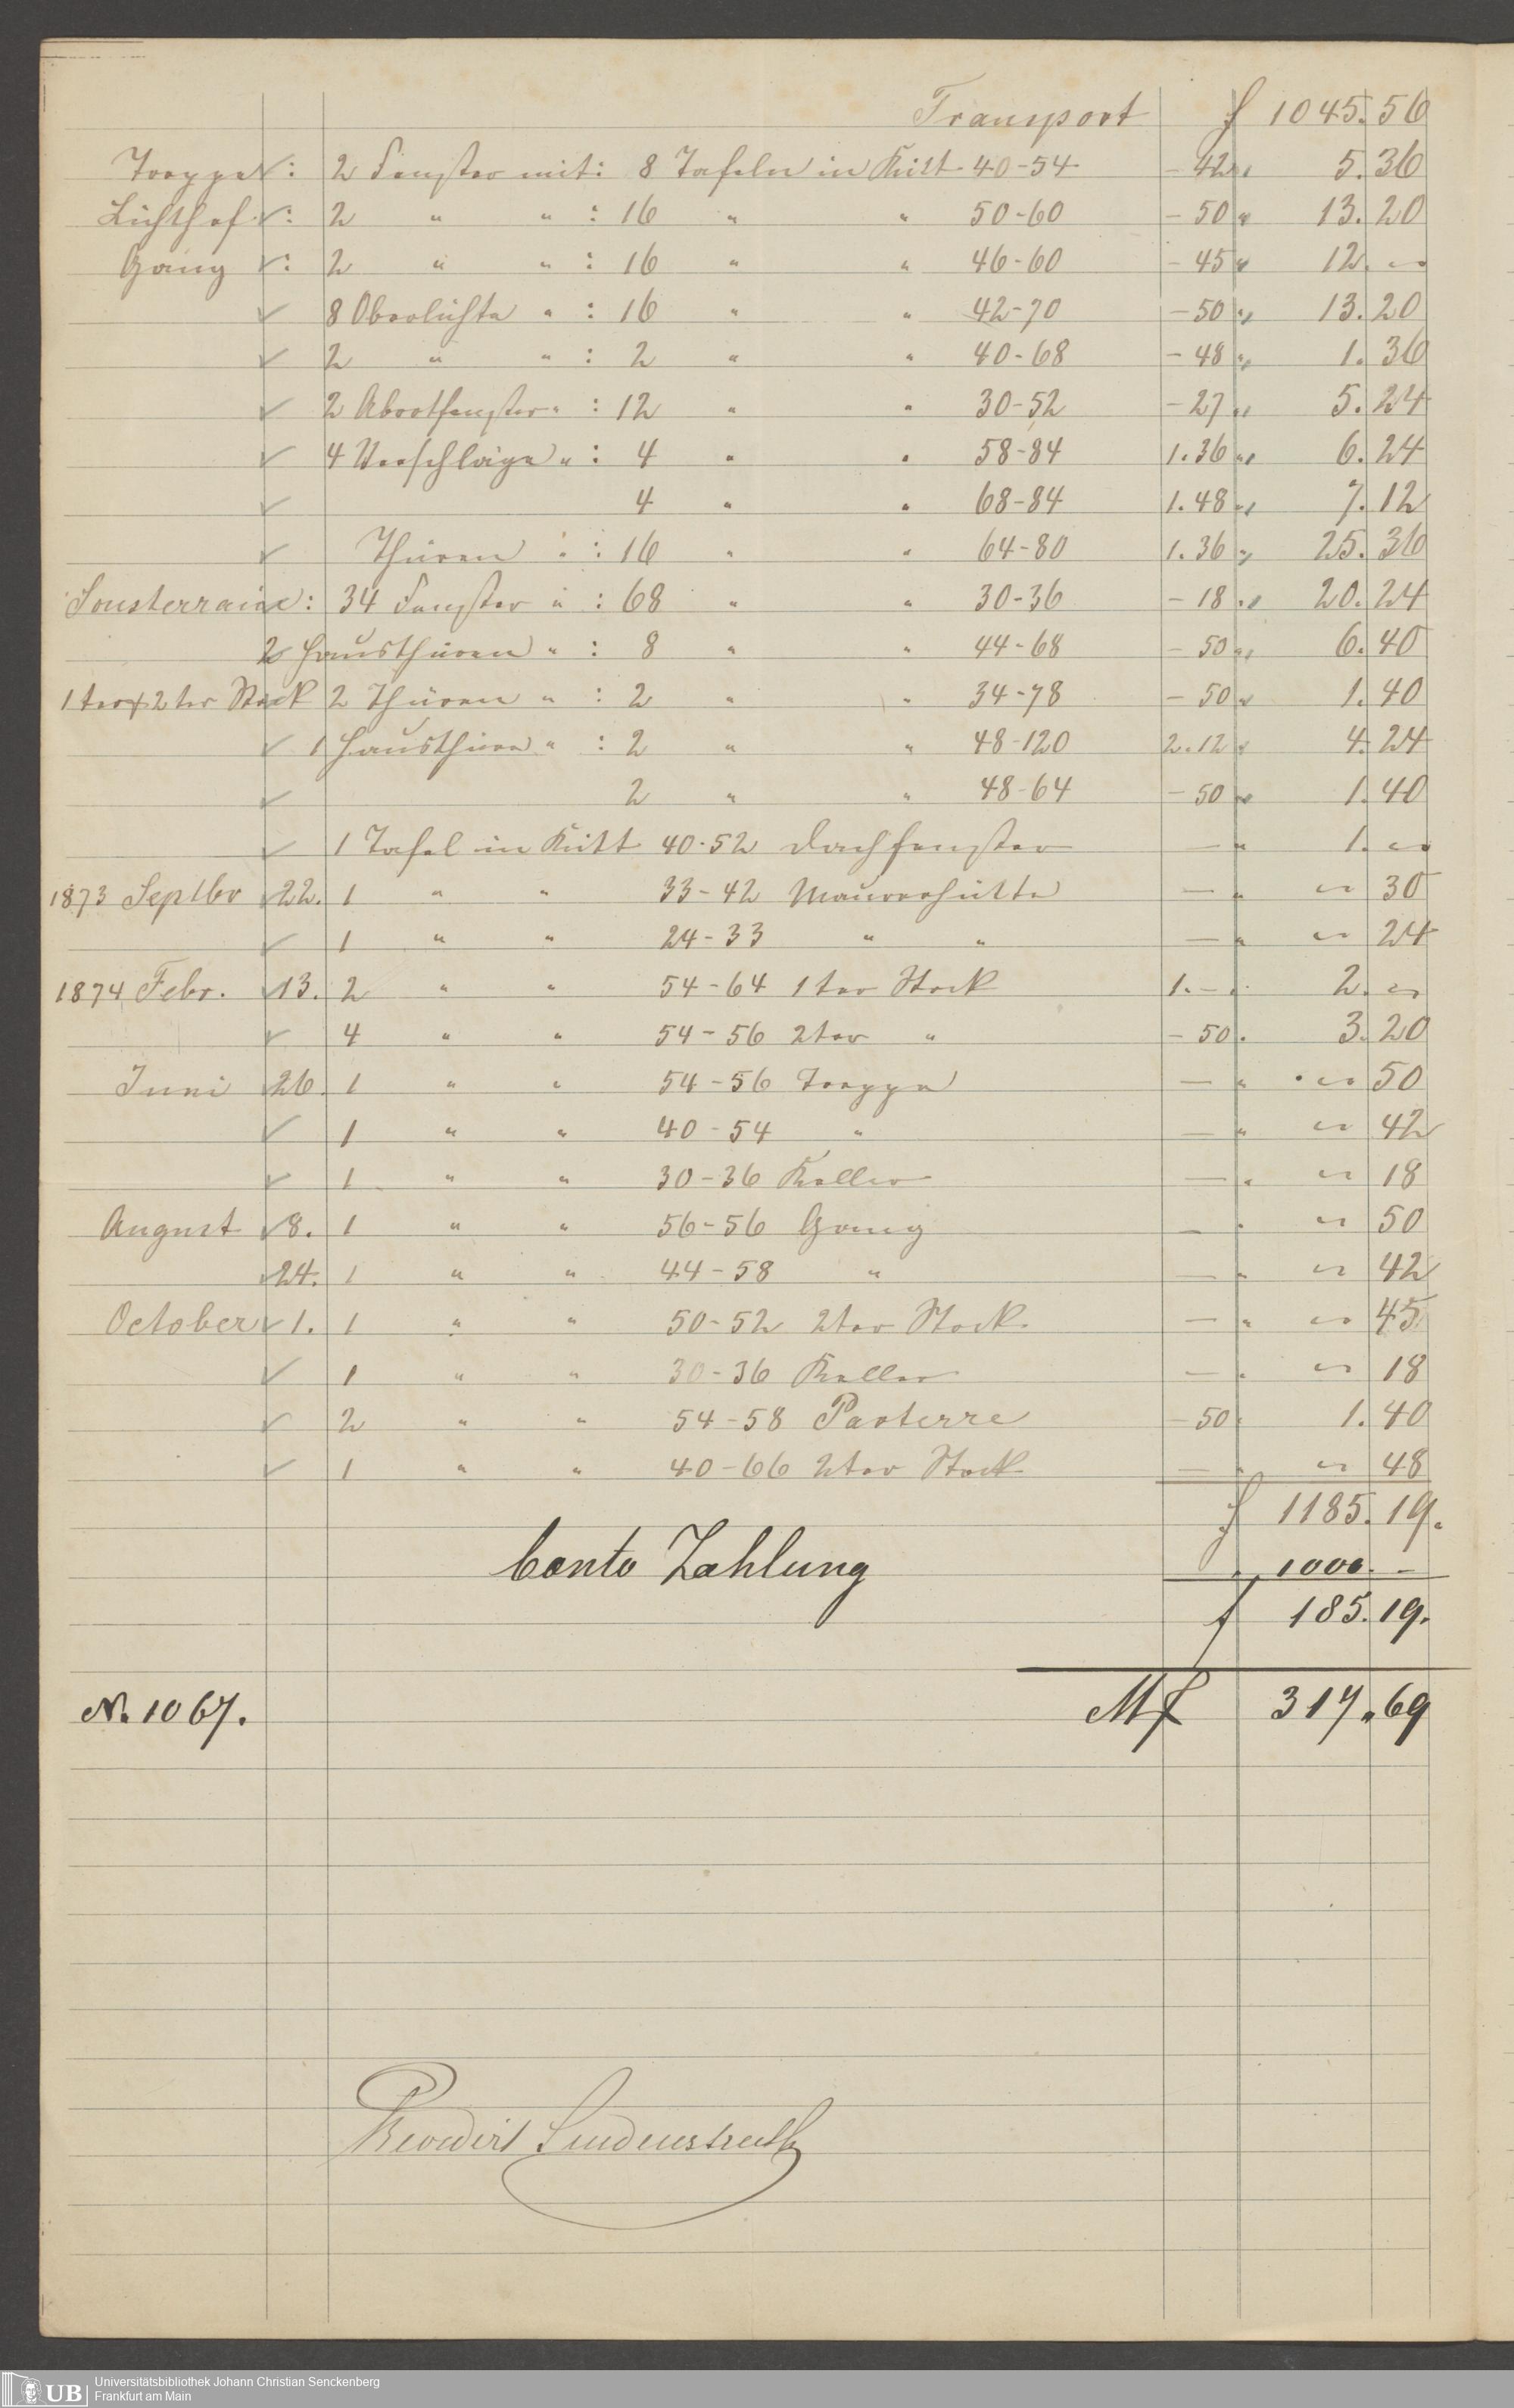 Transport f 1045. 56
Treppe ✓: 2 Fenster mit: 8 Tafeln in Kitt 40-54 - 42 „ 5. 36
Lichthof ✓: 2 " " : 16 " " 50-60 - 50 „ 13. 20
Gang ✓: 2 " " : 16 " " 46-60 - 45 „ 12. -
✓ 8 Oberlichte " : 16 " " 42-70 - 50 „ 13. 20
✓ 2 " " : 2 " " 40-68 - 48 „ 1. 36
✓ 2 Abortfenster " : 12 " " 30-52 - 27 „ 5. 24
✓ 4 Verschläge " : 4 " " 58-84 1. 36 „ 6. 24
✓ 4 " " 68-84 1. 48 „ 7. 12
✓ Thüren " : 16 " " 64-80 1. 36 „ 25. 36
Sousterrain: 34 Fenster " : 68 " " 30-36 - 18 „ 20. 24
2 Hausthüren " : 8 " " 44-68 - 50 „ 6. 40
1ter & 2ter Stock 2 Thüren " : 2 " " 34-78 - 50 „ 1. 40
✓ 1 Hausthüre " : 2 " " 48-120 2. 12 „ 4. 24
✓ 2 " " 48-64 - 50 „ 1. 40
✓ 1 Tafel in Kitt 40-52 Dachfenster — " 1. -
1873 Septbr 22. 1 " " 33-42 Maurerhütte — " - 30
✓ 1 " " 24-33 " " — " - 24
1874 Febr. 13. 2 " " 54-64 1ter Stock 1. - " 2. -
✓ 4 " " 54-56 2ter " - 50 " 3. 20
Juni 26. 1 " " 54-56 Treppe — " - 50
✓ 1 " " 40-54 " — " - 42
✓ 1 " " 30-36 Keller — " - 18
August ✓ 8. 1 " " 56-56 Gang — " - 50
✓ 24. 1 " " 44-58 " — " - 42
October ✓ 1. 1 " " 50-52 2ter Stock — " - 45
✓ 1 " " 30-36 Keller — " - 18
✓ 2 " " 54-58 Parterre - 50 " 1. 40
✓ 1 " " 40-66 2ter Stock — " - 48
f 1185. 19.
Conto Zahlung „ 1000. -
f 185. 19.
N. 1067. Mf 317 „ 69
Revidirt Lindenstruth
UB Universitätsbibliothek Johann Christian Senckenberg
Frankfurt am Main